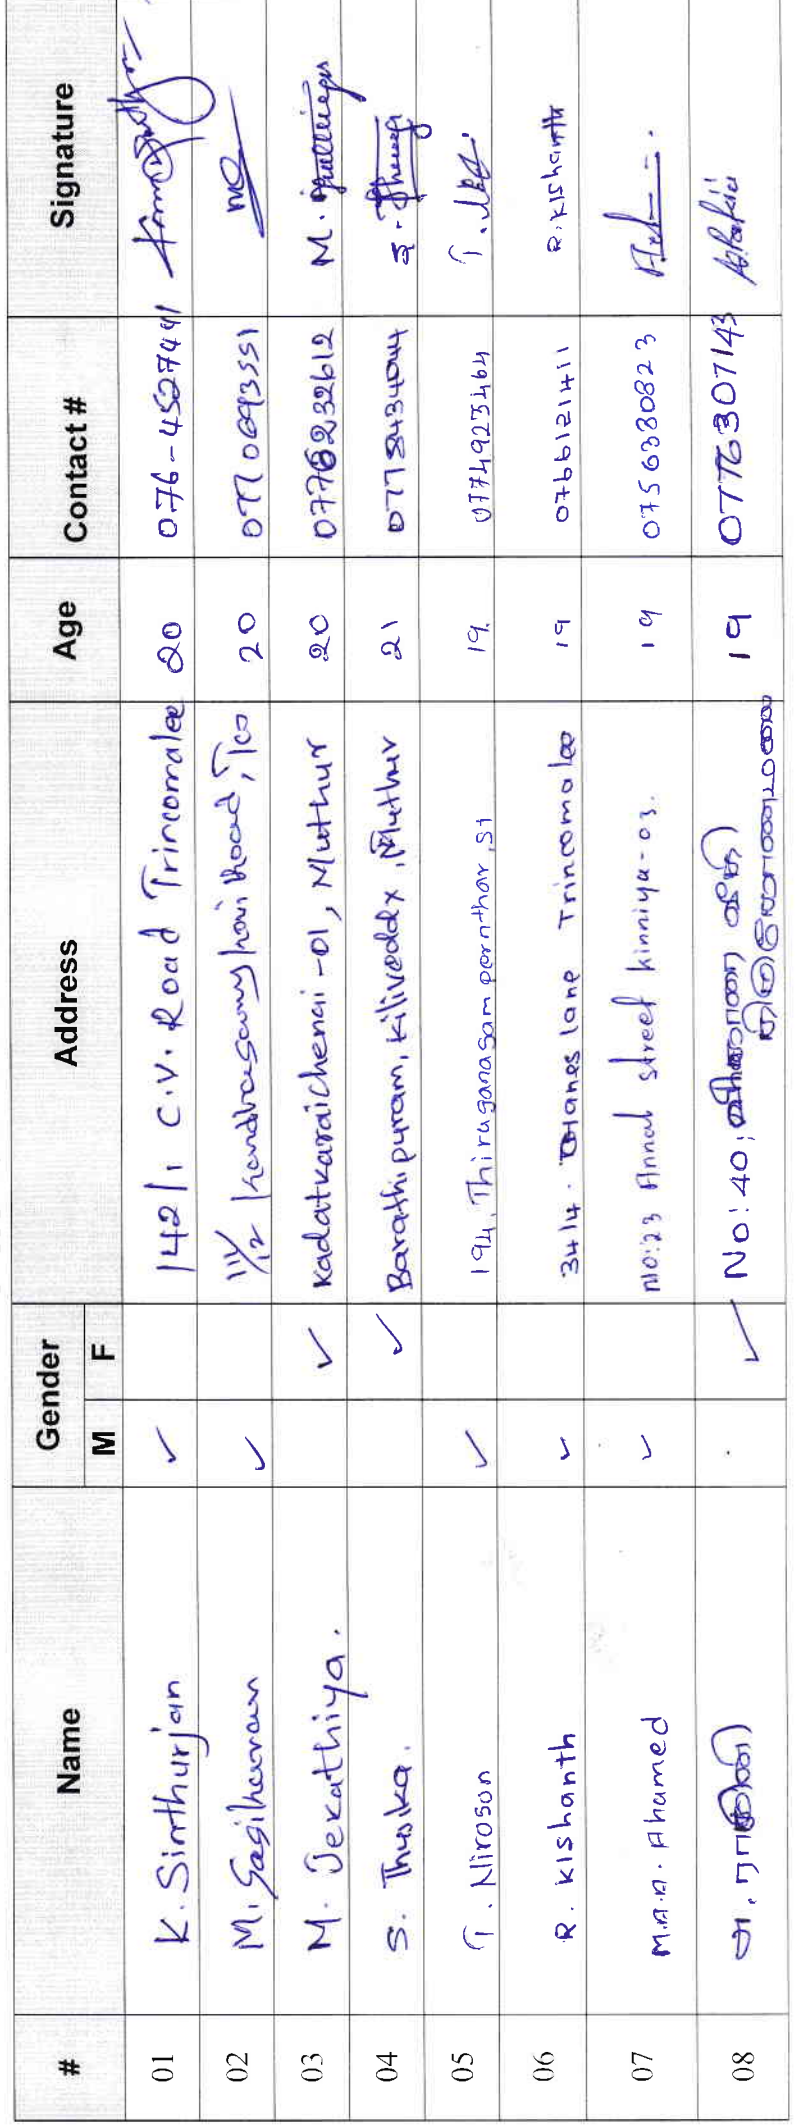 # Name Gender Address Age Contact # Signature
M F
01 K. Sinthurjan ✓ 142/1 C.V. Road Trincomalee 20 076-4527441
02 M. Sagiharan ✓ Tco 20 0770693551
03 M. Jekathiya. ✓ Kadatkaraichenai -01, Muthur 20 0776232612 M.
04 S. Thusika. ✓ Barathipuram, Kiliveddy, Muthur 21 0778434044
05 T. Niroson ✓ 194, Thiruganasam pornthar, st 19. 0774923464 T.
06 R. KIshanth ✓ 34/4. lane Trincomalee 19 0766121411 R. KIshanth
07 M.A.A. Ahamed ✓ No:23 Annal street kinniya-03. 19 0756380823
08 அ. ராகினி ✓ No: 40, வீதி 19 0776307143
திருகோணமலை